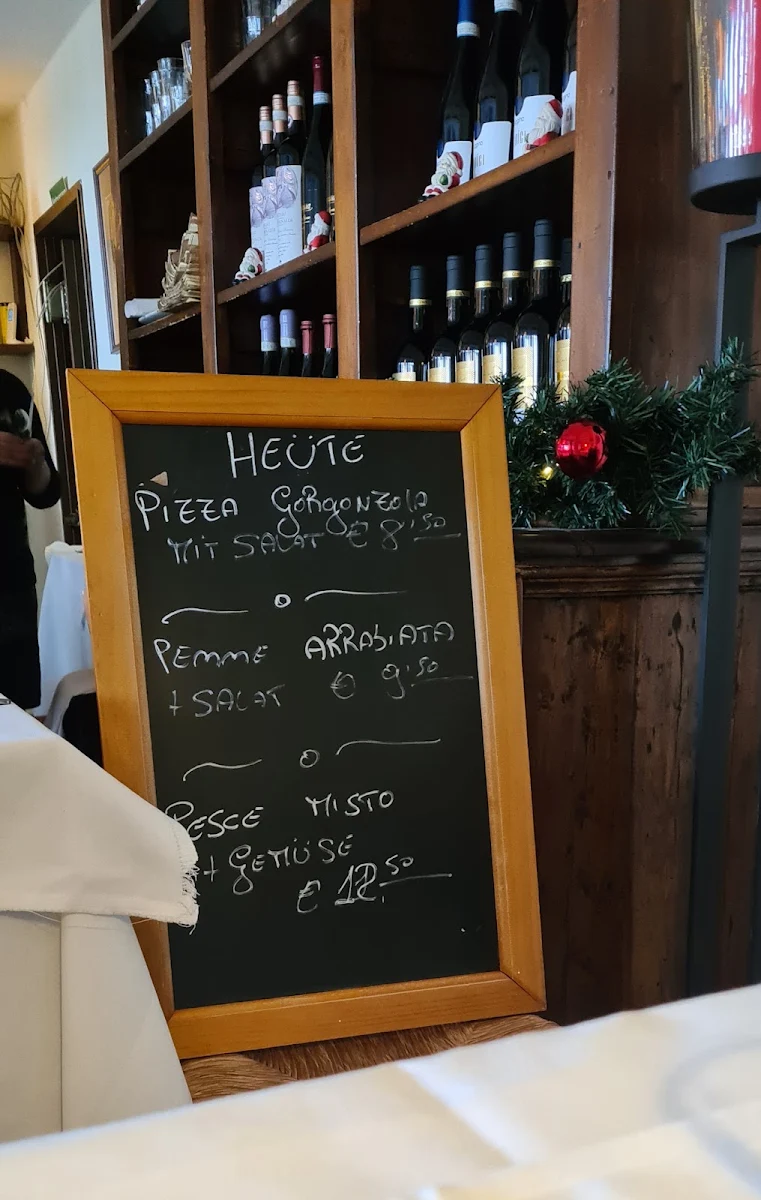 HEUTE
PIZZA GORGONZOLA
MIT SALAT € 8,50
PENNE ARRABIATA
+ SALAT € 9,50
PESCE MISTO
+ GEMÜSE
€ 12,50